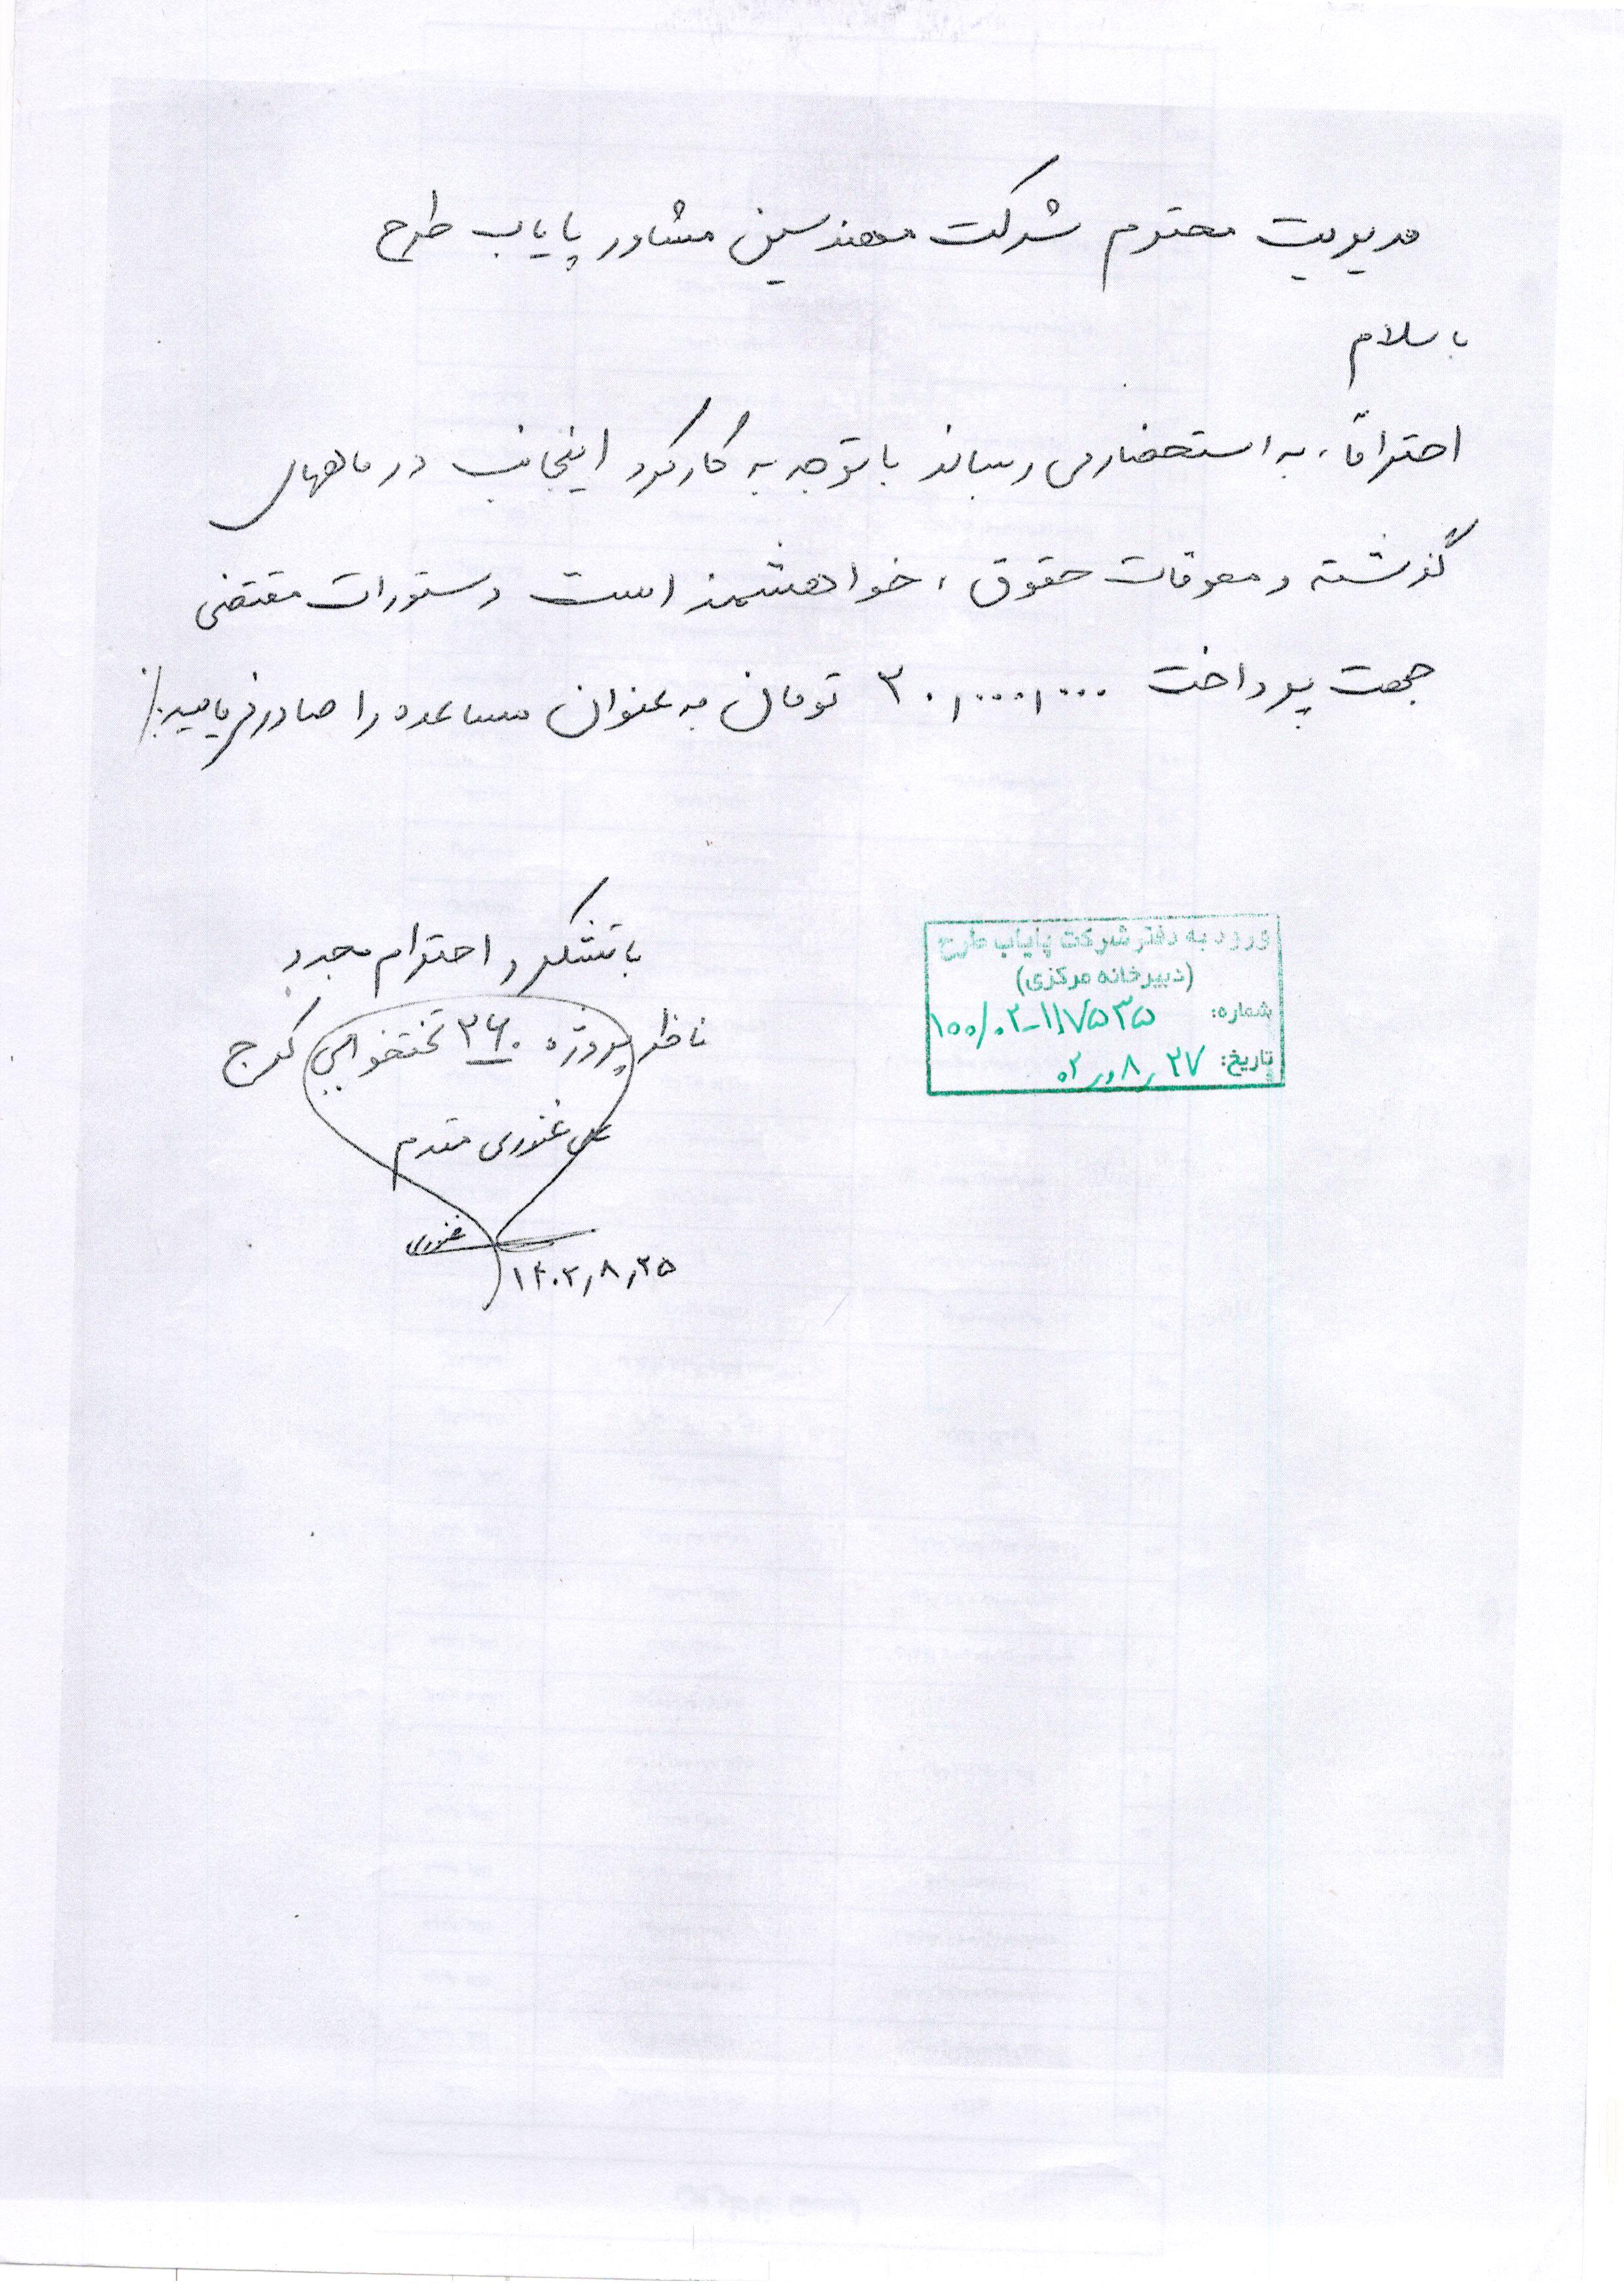 مدیریت محترم شرکت مهندسین مشاور پایاب طرح
با سلام
احتراماً، به استحضار می رساند با توجه به کارکرد اینجانب در ماههای
گذشته و معوقات حقوق، خواهشمند است دستورات مقتضی
جهت پرداخت ۳۰,۰۰۰,۰۰۰ تومان به عنوان مساعده را صادر فرمایید./
با تشکر و احترام مجدد
ناظر پروژه ۲۶۰ تختخوابی کرج
علی غفوری مقدم
غفوری
۱۴۰۲,۸,۲۵
ورود به دفتر شرکت پایاب طرح
(دبیرخانه مرکزی)
شماره: ۱۰۰/۰۲-۱۱۷۵۳۵
تاریخ: ۰۲,۸,۲۷